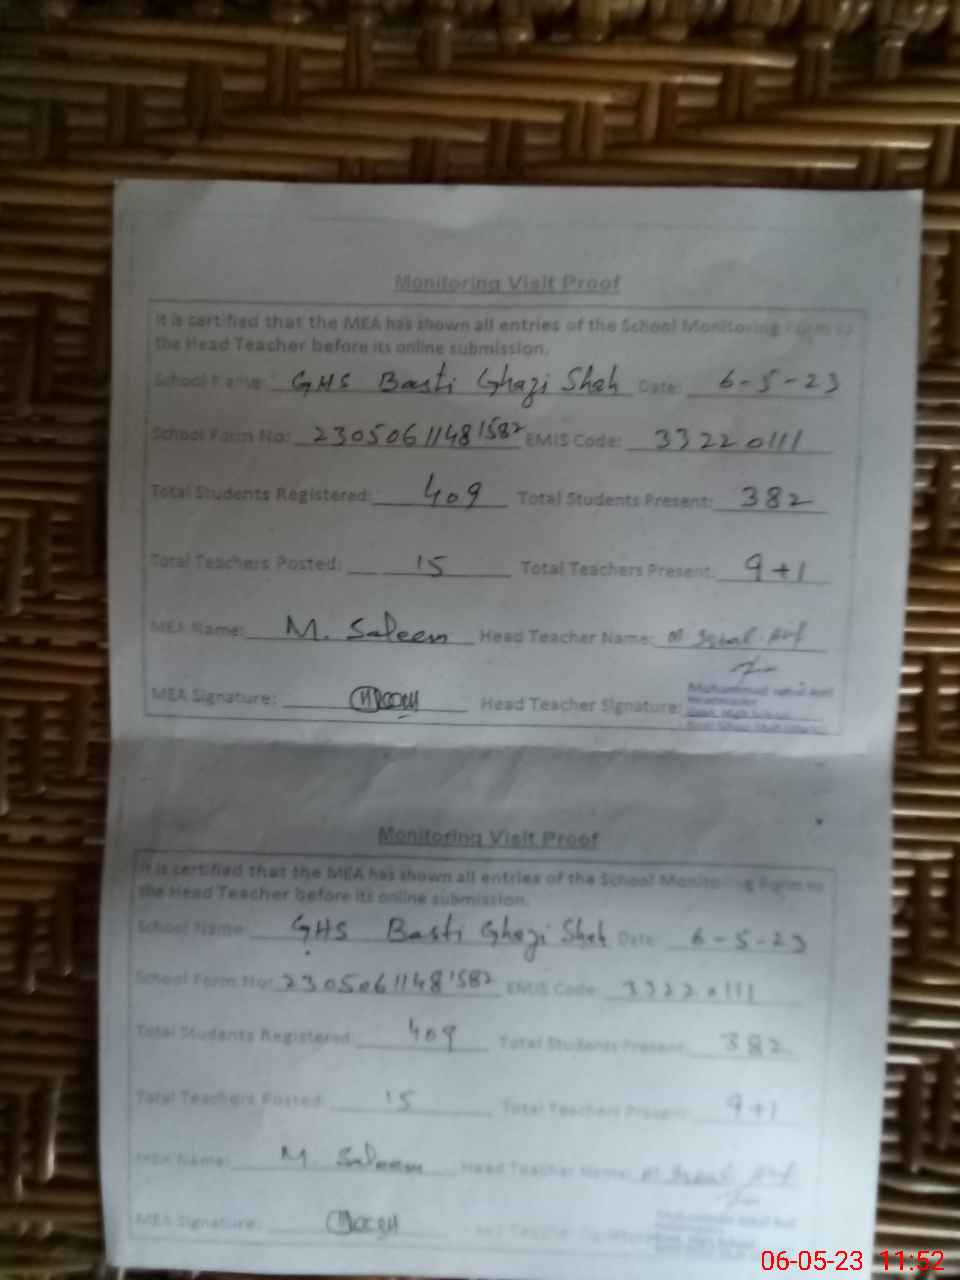 Monitoring Visit Proof
It is certified that the MEA has shown all entries of the School Monitoring Form to
the Head Teacher before its online submission.
School Name: GHS Basti Ghazi Shah Date: 6-5-23
School Form No: 23050611481582 EMIS Code: 33220111
Total Students Registered: 409 Total Students Present: 382
Total Teachers Posted: 15 Total Teachers Present: 9+1
MEA Name: M. Saleem Head Teacher Name: M
MEA Signature: Head Teacher Signature:
Muhammad
Headmaster
Govt. High School
Monitoring Visit Proof
It is certified that the MEA has shown all entries of the School Monitoring Form to
the Head Teacher before its online submission.
School Name: GHS Basti Ghazi Shah Date: 6-5-23
School Form No: 23050611481582 EMIS Code: 33220111
Total Students Registered: 409 Total Students Present: 382
Total Teachers Posted: 15 Total Teachers Present: 9+1
MEA Name: M. Saleem Head Teacher Name: M
MEA Signature:
06-05-23 11:52